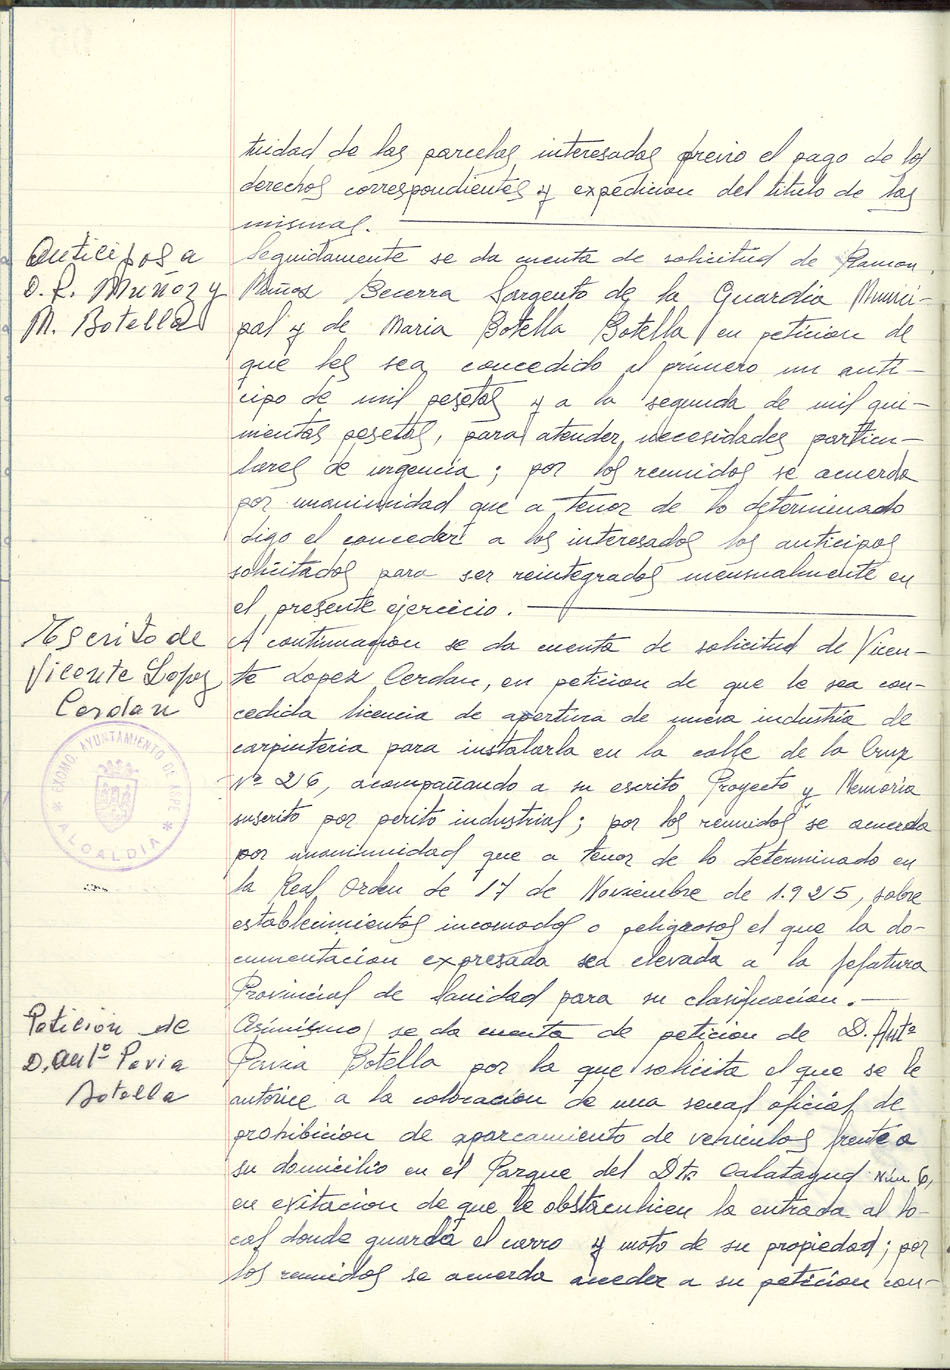 tuidad de las parcelas interesadas previo el pago de los
derechos correspondientes y expedicion del titulo de las
mismas.
Anticipos a
D. R. Muñoz y
M. Botella
Seguidamente se da cuenta de solicitud de Ramon
Muñoz Becerra Sargento de la Guardia Munici-
pal y de Maria Botella Botella en peticion de
que les sea concedido al primero un anti-
cipo de mil pesetas y a la segunda de mil qui-
nientas pesetas, para atender necesidades particu-
lares de urgencia; por los reunidos se acuerda
por unanimidad que a tenor de lo determinado
digo el conceder a los interesados los anticipos
solicitados para ser reintegrados mensualmente en
el presente ejercicio.
Escrito de
Vicente Lopez
Cerdan
A continuacion se da cuenta de solicitud de Vicen-
te Lopez Cerdan, en peticion de que le sea con-
cedida licencia de apertura de nueva industria de
carpinteria para instalarla en la calle de la Cruz
Nº 26, acompañando a su escrito Proyecto y Memoria
suscrito por perito industrial; por los reunidos se acuerda
por unanimidad que a tenor de lo determinado en
la Real Orden de 17 de Noviembre de 1.925, sobre
establecimientos incomodos o peligrosos el que la do-
cumentacion expresada sea elevada a la Jefatura
Provincial de Sanidad para su clasificacion.
EXCMO. AYUNTAMIENTO DE ASPE
* ALCALDIA *
Petición de
D. Antº Pavia
Botella
Asimismo se da cuenta de peticion de D. Antº
Pavia Botella por la que solicita el que se le
autorice a la colocacion de una señal oficial de
prohibicion de aparcamiento de vehiculos frente a
su domicilio en el Parque del Dtr. Calatayud Núm 6,
en evitacion de que le obstaculicen la entrada al lo-
cal donde guarda el carro y moto de su propiedad; por
los reunidos se acuerda acceder a su peticion con-